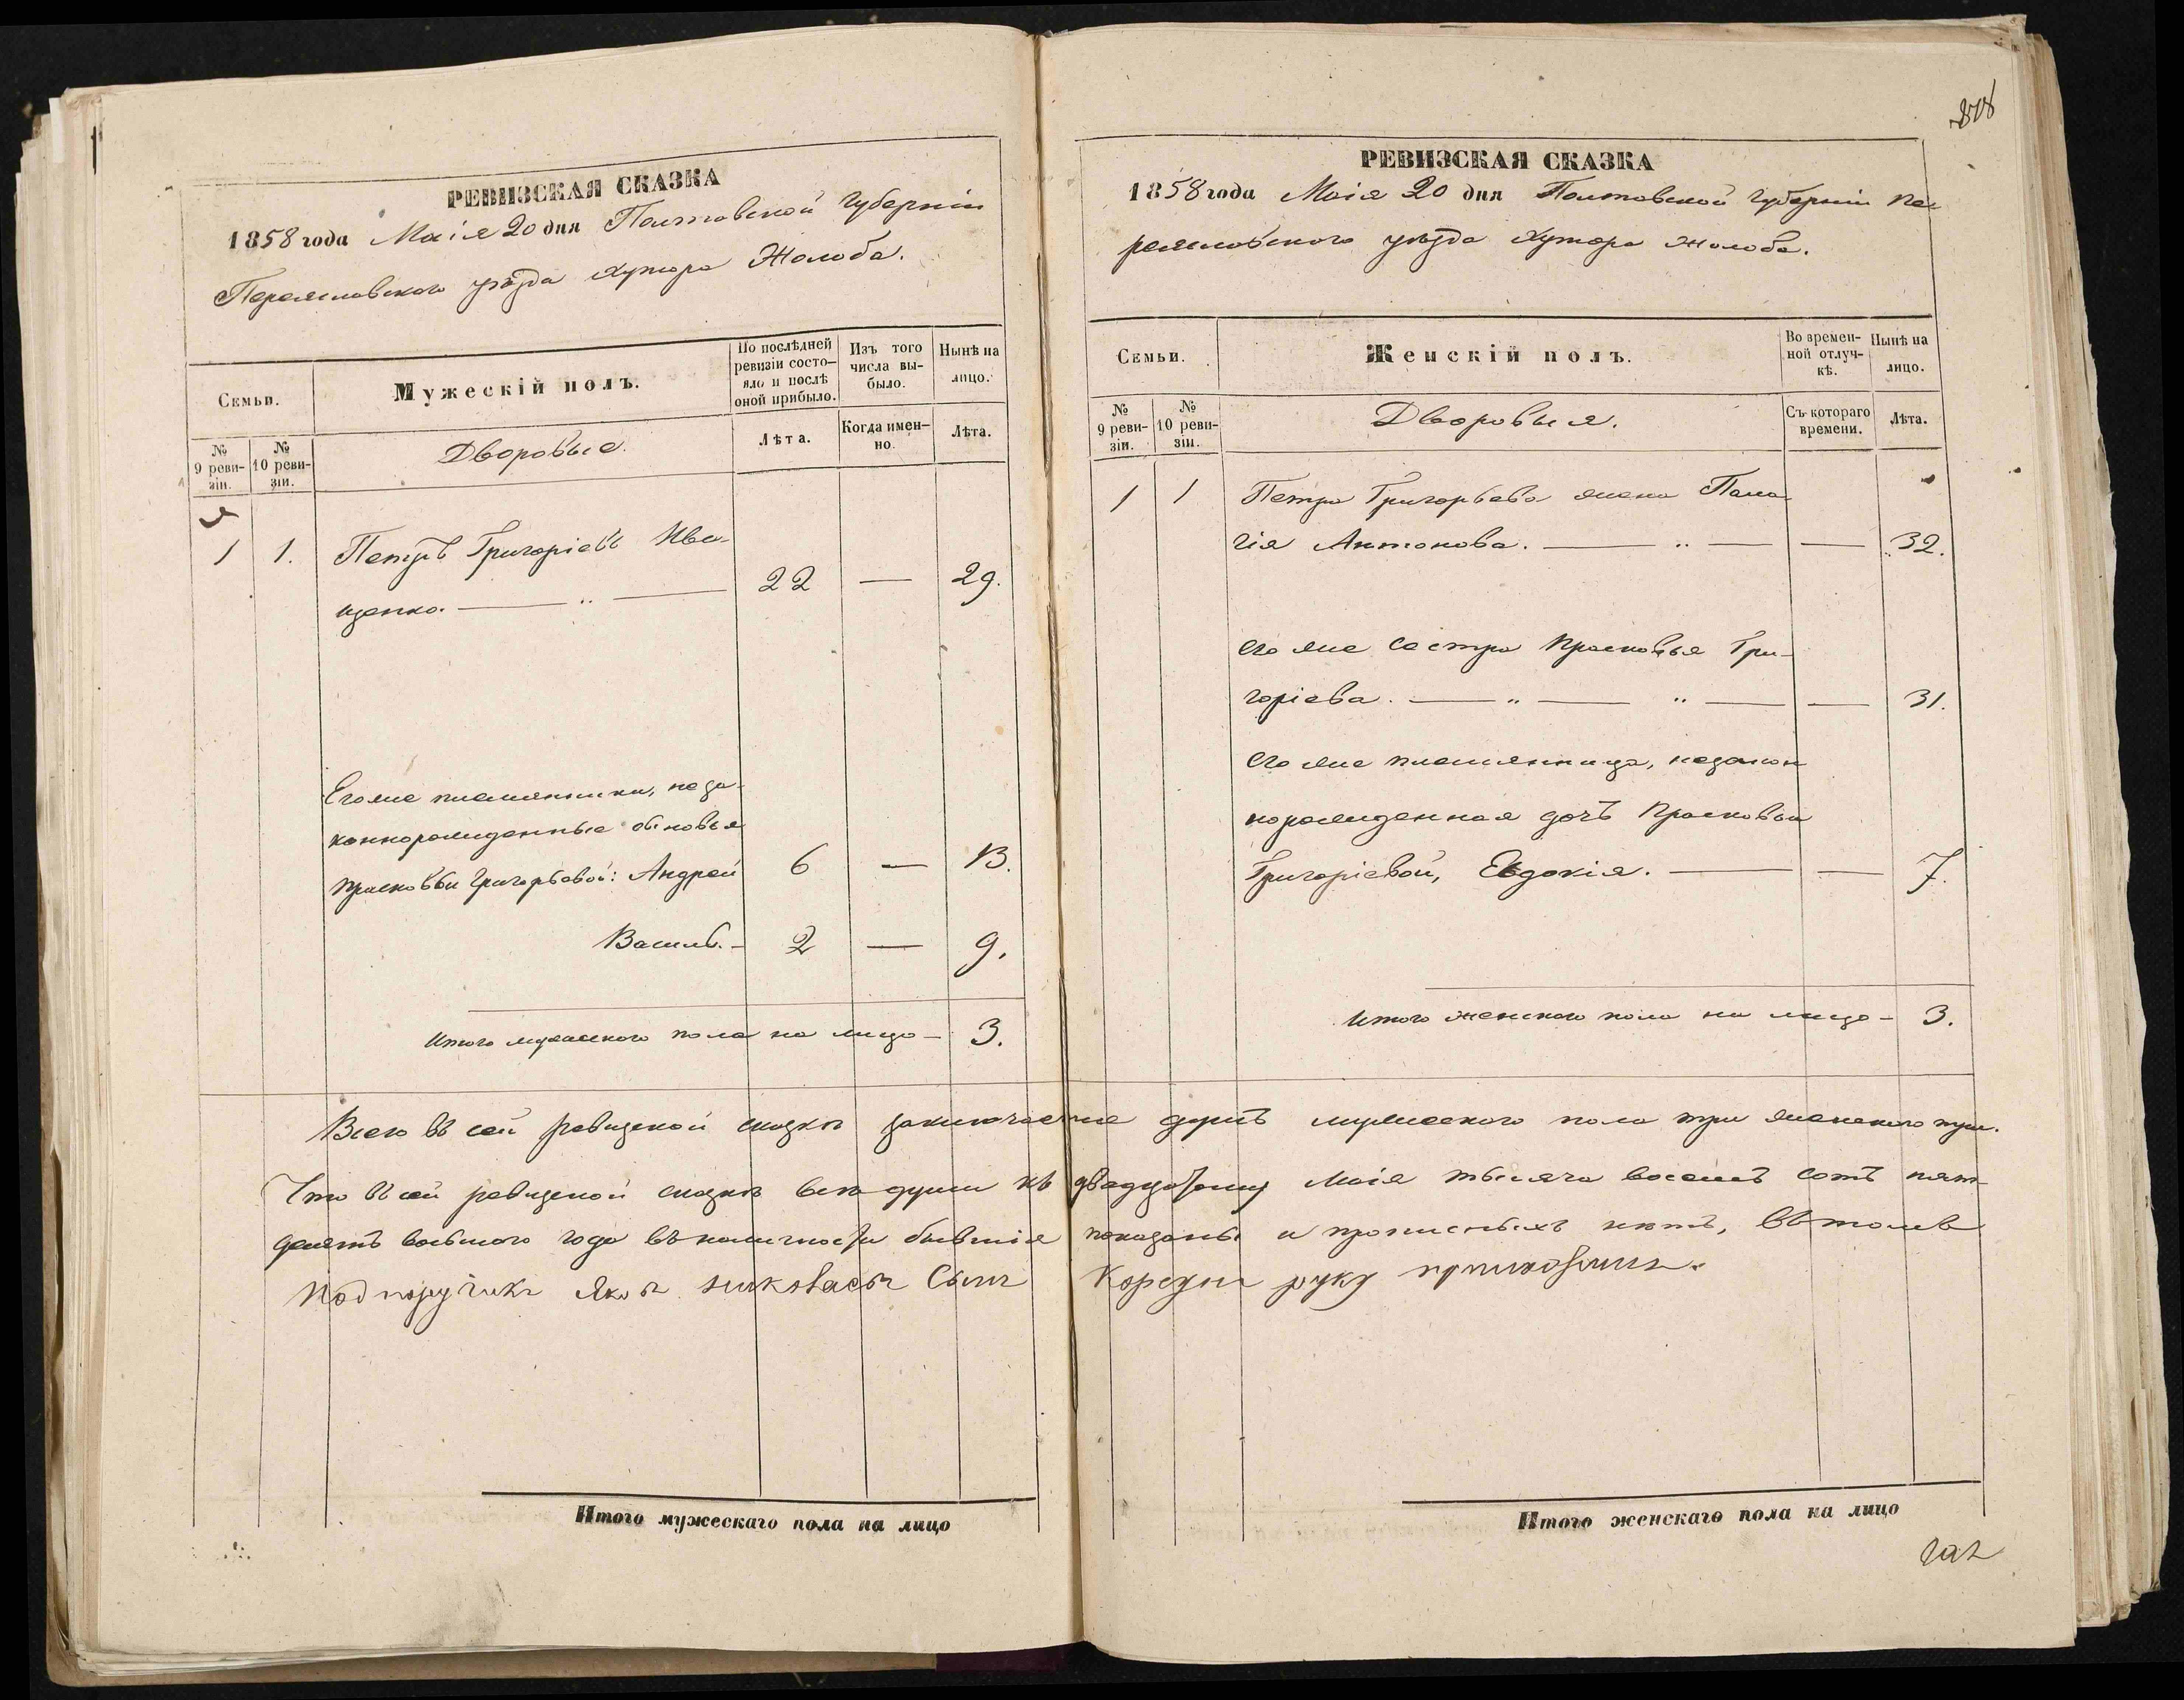 РЕВИЗСКАЯ СКАЗКА
1858 года Маія 20 дня Полтавской Губерніи
Переяславскаго уѣзда Хутора Жолоба.
Семьи.
Мужескій полъ.
По послѣдней ревизіи состояло и послѣ оной прибыло.
Изъ того числа выбыло.
Нынѣ на лицо.
№ 9 ревизіи.
№ 10 ревизіи.
Дворовые.
Лѣта.
Когда именно.
Лѣта.
1 1. Петръ Григоріевъ Ива-
щенко. — „ — 22 — 29.
Его же племянники, неза-
коннорожденные сыновья
Прасковьи Григорьевой: Андрей 6 — 13.
Василь. — 2 — 9.
Итого мужескаго пола на лицо — 3.
РЕВИЗСКАЯ СКАЗКА
1858 года Маія 20 дня Полтавской Губерніи Пе-
реяславскаго уѣзда Хутора Жолоба.
Семьи.
Женскій полъ.
Во временной отлучкѣ.
Нынѣ на лицо.
№ 9 ревизіи.
№ 10 ревизіи.
Дворовыя.
Съ котораго времени.
Лѣта.
1 1 Петра Григорьева жена Пала-
гія Антонова. — „ — — 32.
Его же сестра Прасковья Гри-
горіева. — „ — „ — — 31.
Его же племянница, незакон
норожденная дочь Прасковьи
Григоріевой, Евдокія. — — 7.
Итого женскаго пола на лицо — 3.
Всего въ сей ревизской сказкѣ заключается душъ мужескаго пола три женскаго три.
Что въ сей ревизской сказкѣ всѣ души къ двадцатому Маія тысяча восемь сотъ пять-
десятъ восьмого года въ наличности бывшія показаны и прописныхъ нѣтъ, въ томъ
Подпоручикъ Яковъ сынъ руку приложилъ.
Итого мужескаго пола на лицо
Итого женскаго пола на лицо